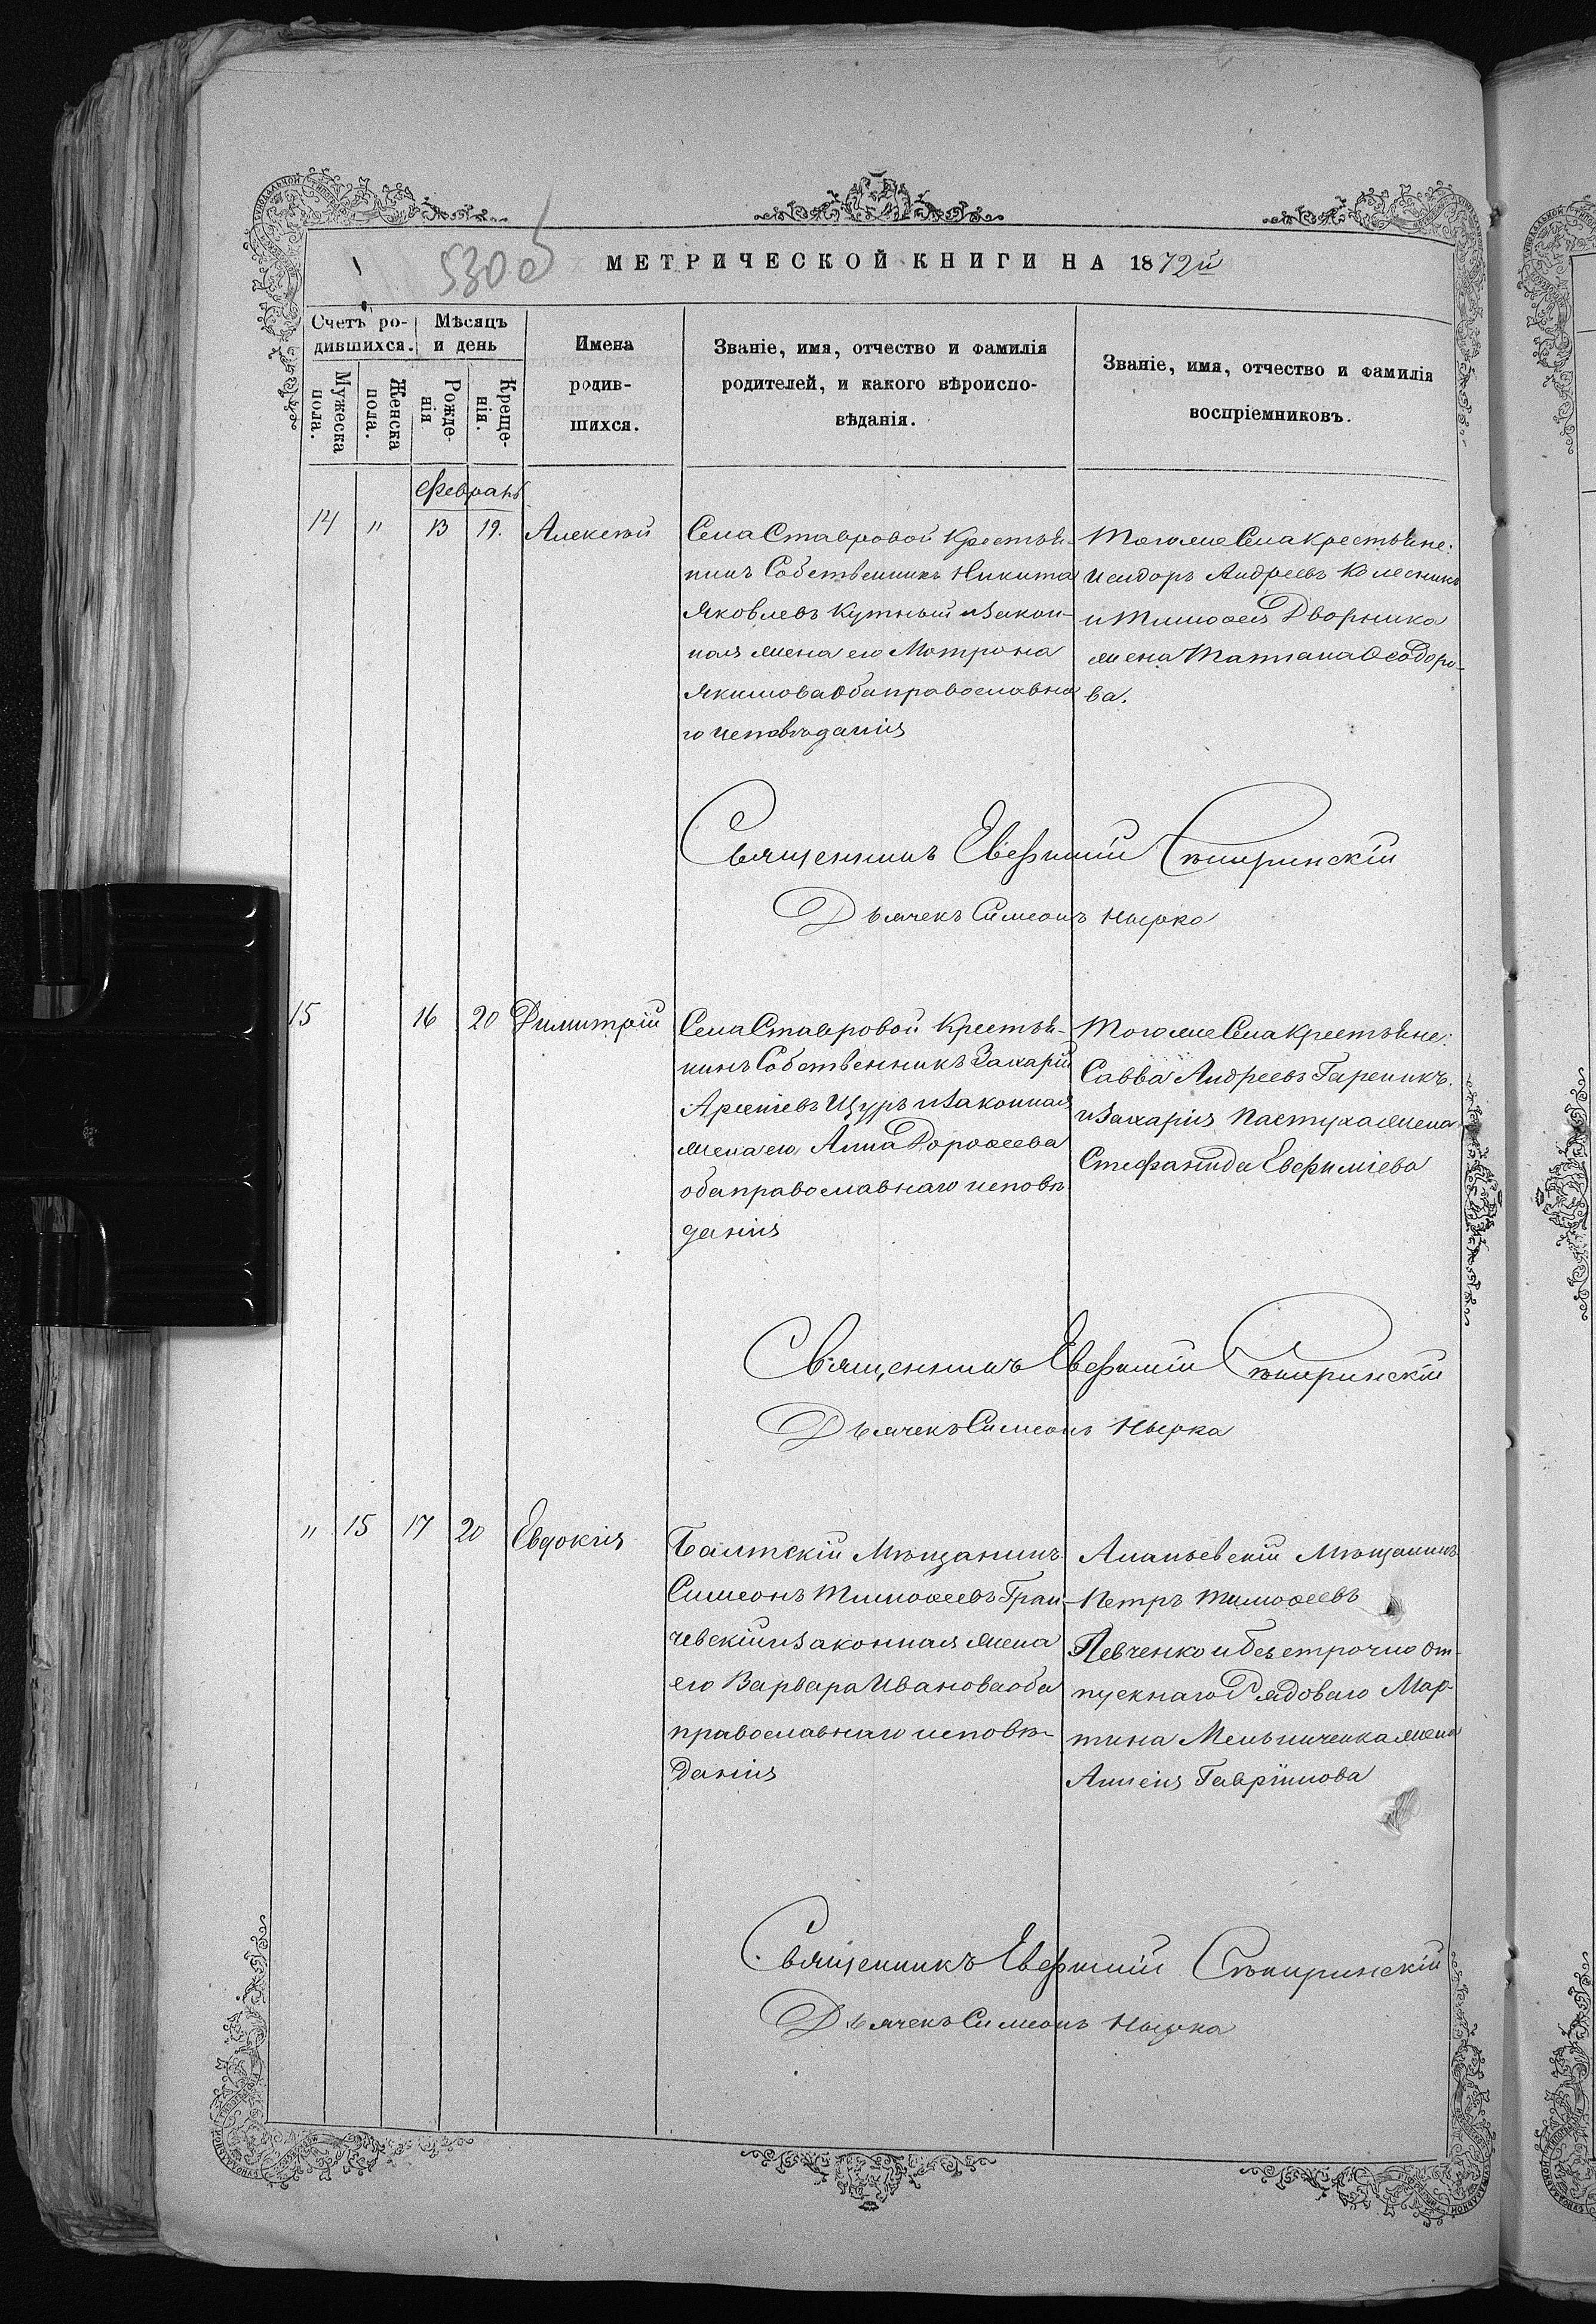 530об
МЕТРИЧЕСКОЙ КНИГИ НА 1872й
Счетъ ро-
дившихся.
Мужеска
пола.
Женска
пола.
Мѣсяцъ
и день
Рожде-
нія
Креще-
нія.
Имена
родив-
шихся.
Званіе, имя, отчество и фамилія
родителей, и какого вѣроиспо-
вѣданія.
Званіе, имя, отчество и фамилія
воспріемниковъ.
Февраль
14 " 13 19. Алексѣй
Села Ставровой Крестья-
нинъ Собственникъ Никита
Яковлевъ Кутный и Закон-
ная жена его Мотрона
Якимова оба православна
го исповѣданія
Того же Села Крестьяне:
Исидоръ Андреевъ Колесникъ
и Тимоѳея Дворника
жена Татіана Ѳеодоро-
ва.
Священникъ Евфимій
Дьячекъ Симеонъ Нырка
15 16 20 Димитрій
Села Ставровой Крестья-
нинъ Собственникъ Захарій
Арсеніевъ Щуръ и Законная
жена его Анна Дороѳеева
оба православнаго исповѣ
данія
Того же Села Крестьяне:
Савва Андреевъ Гареникъ
и Захарія Пастуха жена
Стефанида Евфиміева
Священникъ Евфимій
Дьячекъ Симеонъ Нырка
" 15 17 20 Евдокія
Балтскій Мѣщанинъ
Симеонъ Тимоѳеевъ Гран-
чевскій и Законная жена
его Варвара Иванова оба
православнаго исповѣ-
данія
Ананьевскій Мѣщанинъ
Петръ Тимоѳеевъ
Левченко и Безсрочно от-
пускнаго Рядоваго Мар-
тина Мельниченка жена
Анисія Гавріилова
Священникъ Евфимій
Дьячекъ Симеонъ Нырка